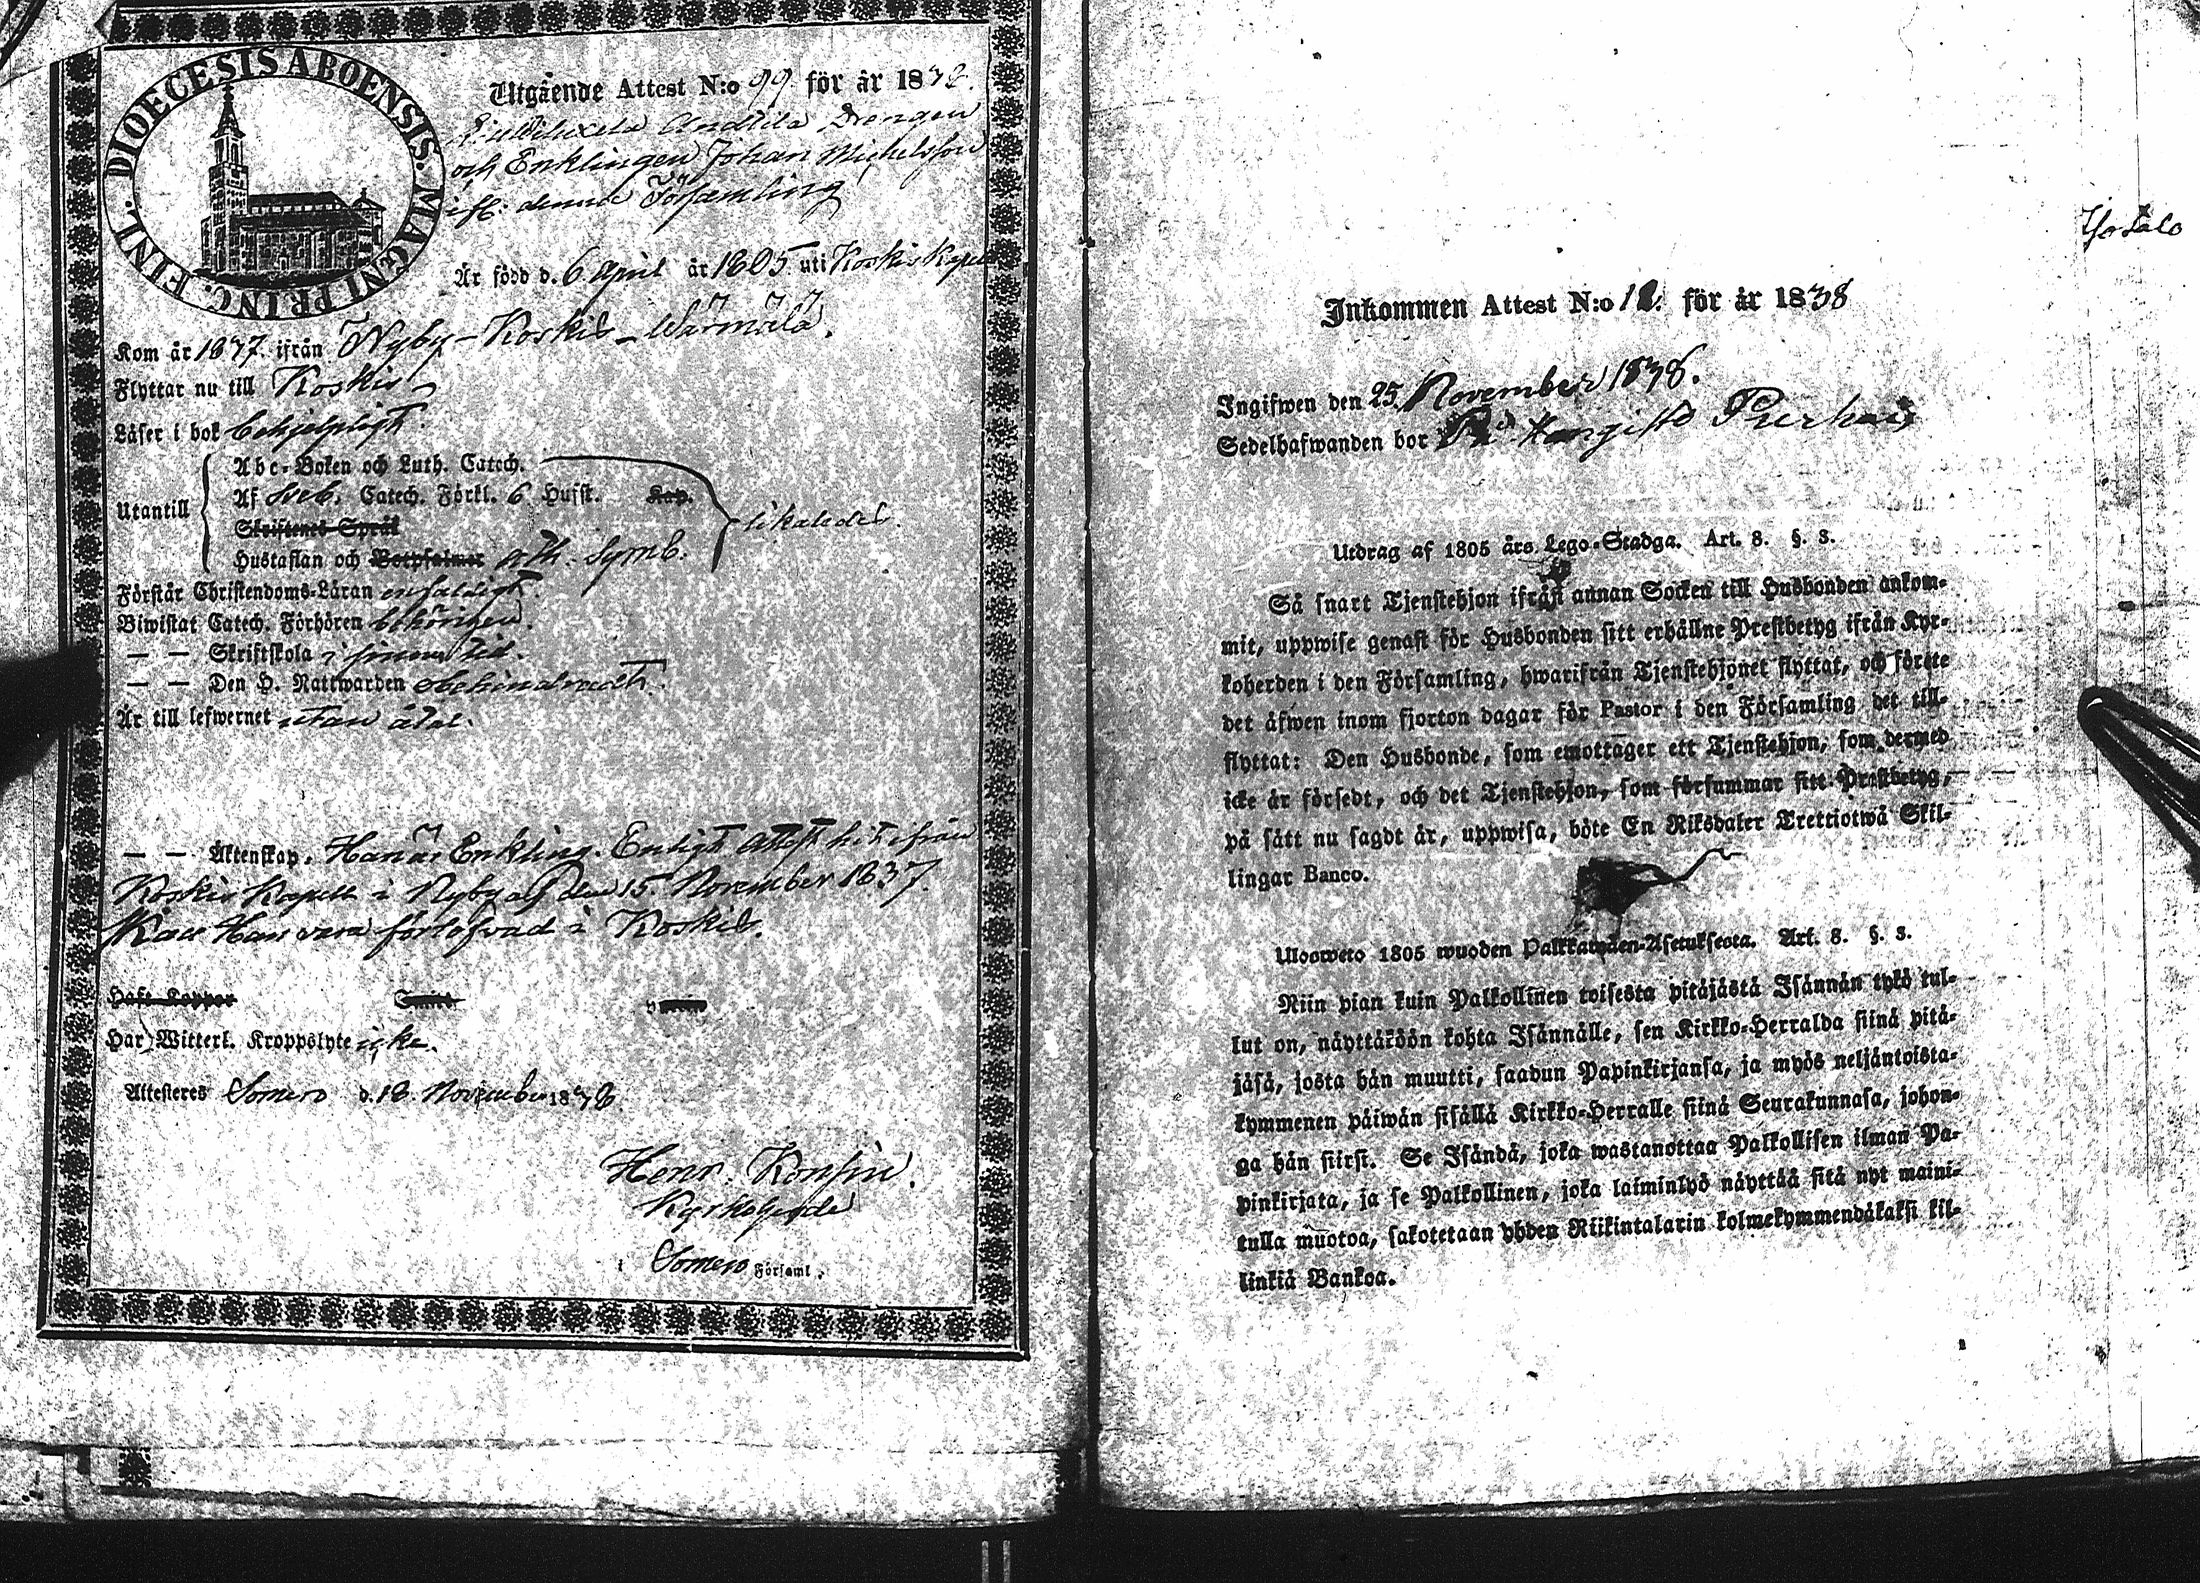 DIOECESIS ABOENSIS. MAGNI PRINC. FINL.
Utgående Attest N:o 99. för år 1838.
Drengen
och Enklingen Johan Michelsson
denna Församling
Är född d. 6 April år 1805 uti Koskis Kapell
Kom år 1837. ifrån Nyby-Koskis-Wärmälä.
Flyttar nu till Koskis
Läser i bok behjelpligt.
Abc-Boken och Luth. Catech.
Utantill Af Sveb. Catech. Förkl. 6 Hufst. Kap.
Skriftenes Språk
likaledes.
Hustaflan och Botpsalmer Ath. Symb.
Förstår Christendoms-Läran enfaldigt.
Biwistat Catech. Förhören behörigen.
— — Skriftskola i sinom tid.
— — Den H. Nattwarden obehindradt.
Är till lefwernet utan åtal.
— — Äktenskap. Han är Enkling. Enligt Attest hit ifrån
Koskis Kapell i Nyby af den 15. November 1837.
Kan Han vara förlofvad i Koskis.
Haft Koppor
Har Witterl. Kroppslyte icke.
Attesteres Somero d. 18. November 1838.
Henr. Konsin.
Kyrkoherde
i Somero Församl.
Isotalo
Inkommen Attest N:o 12. för år 1838
Ingifwen den 25. November 1838.
Sedelhafwanden bor På Kongisto
Utdrag af 1805 års Lego-Stadga. Art. 8. §. 3.
Så snart Tjenstehjon ifrån annan Socken till Husbonden ankom-
mit, uppwise genast för Husbonden sitt erhållne Prestbetyg ifrån Kyr-
koherden i den Församling, hwarifrån Tjenstehjonet flyttat, och förete
det äfwen inom fjorton dagar för Pastor i den Församling det till-
flyttat: Den Husbonde, som emottager ett Tjenstehjon, som dermed
icke är försedt, och det Tjenstehjon, som försummar sitt Prestbetyg,
på sätt nu sagdt är, uppwisa, böte En Riksdaler Trettiotwå Skil-
lingar Banco.
Ulosweto 1805 wuoden Palkkawäen-Asetuksesta. Art. 8. §. 3.
Niin pian kuin Palkollinen toisesta pitäjästä Isännän tykö tul-
lut on, näyttäköön kohta Isännälle, sen Kirkko-Herralda siinä pitä-
jäsä, josta hän muutti, saadun Papinkirjansa, ja myös neljäntoista-
kymmenen päiwän sisällä Kirkko-Herralle siinä Seurakunnasa, johon-
ga hän siirsi. Se Isändä, joka wastanottaa Palkollisen ilman Pa-
pinkirjata, ja se Palkollinen, joka laiminlyö näyttää sitä nyt maini-
tulla muotoa, sakotetaan yhden Riikintalarin kolmekymmendäkaksi kil-
linkiä Bankoa.